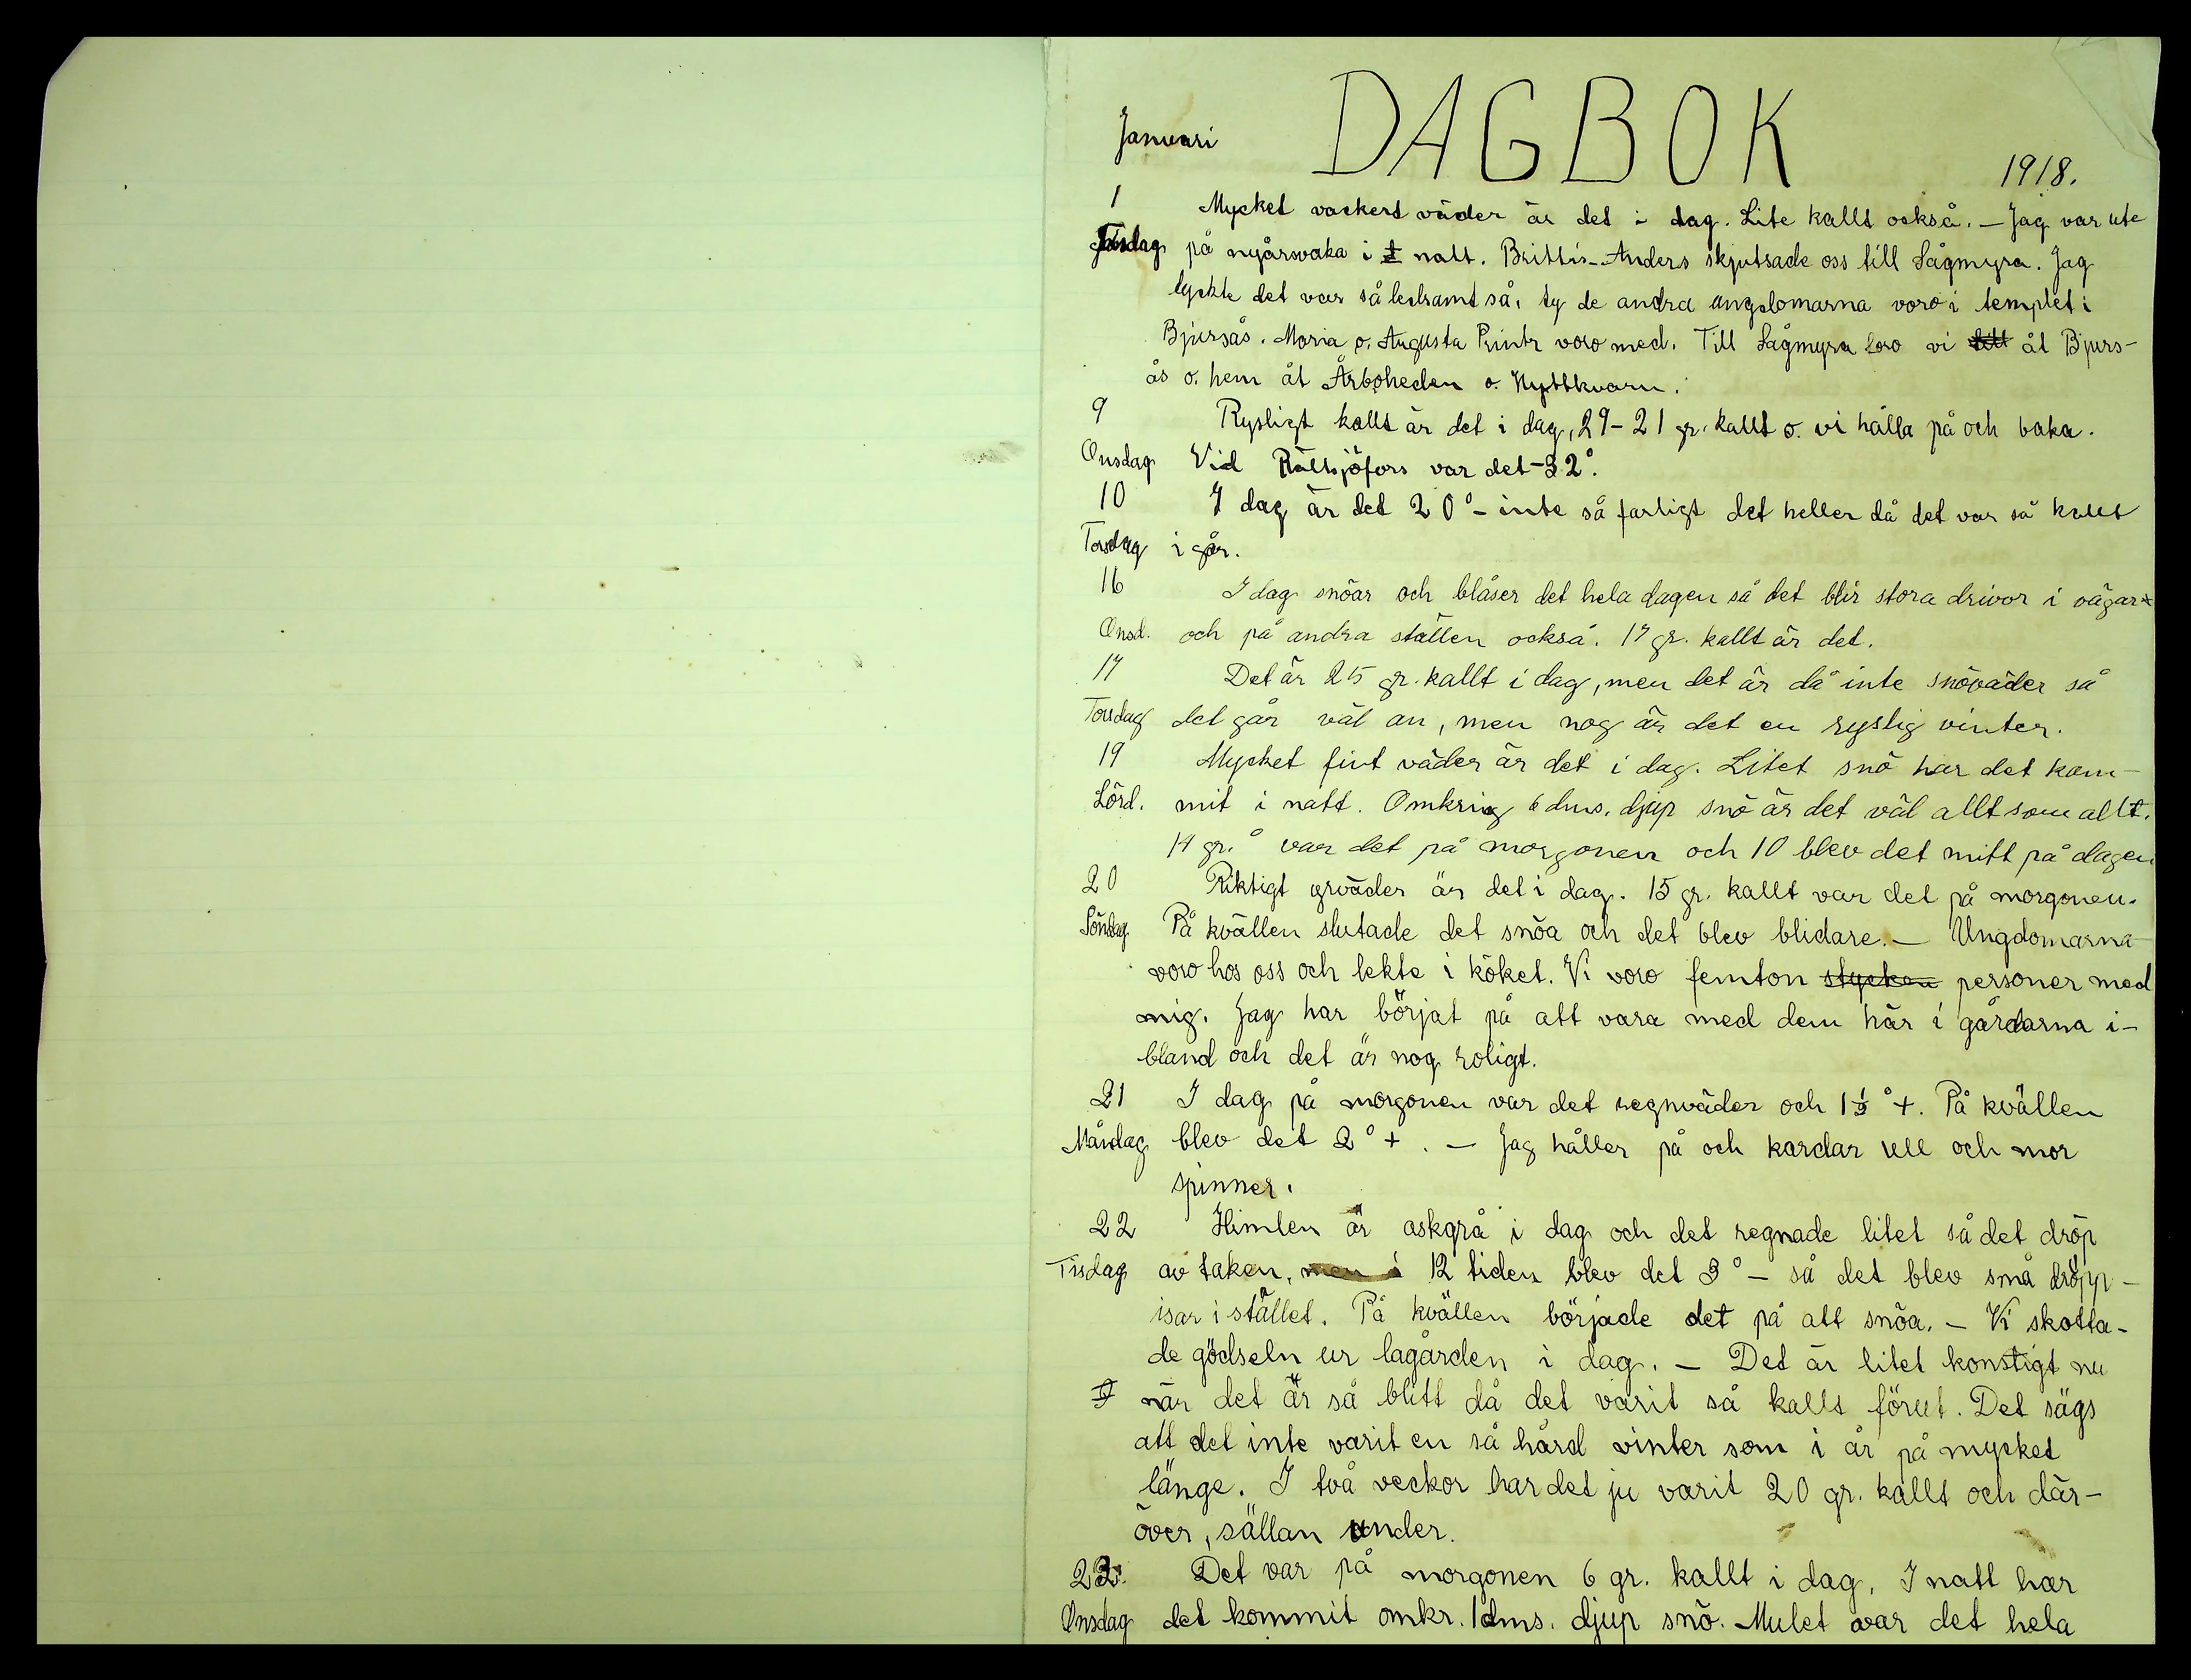 Januari DAGBOK 1918.
1 Mycket vackert väder är det i dag. Lite kallt också. — Jag var ute
Tisdag på nyårsvaka i natt. Brittis-Anders skjutsade oss till Sågmyra. Jag
tyckte det var så ledsamt så, ty de andra ungdomarna voro i templet i
Bjursås. Maria o. Augusta voro med. Till Sågmyra foro vi åt Bjurs-
ås o. hem åt Årboheden o. Hyttkvarn.
9 Rysligt kallt är det i dag, 29-21 gr. kallt o. vi hålla på och baka.
Onsdag Vid Rältsjöfors var det -32°.
10 I dag är det 20°- inte så farligt det heller då det var så kallt
Torsdag i går.
16 I dag snöar och blåser det hela dagen så det blir stora drivor i vägar
Onsd. och på andra ställen också. 17 gr. kallt är det.
17 Det är 25 gr. kallt i dag, men det är då inte snöväder så
Torsdag det går väl an, men nog är det en ryslig vinter.
19 Mycket fint väder är det i dag. Litet snö har det kom-
Lörd. mit i natt. Omkring 6 dms. djup snö är det väl allt som allt.
14 gr.° var det på morgonen och 10 blev det mitt på dagen
20 Riktigt urväder är det i dag. 15 gr. kallt var det på morgonen.
Söndag På kvällen slutade det snöa och det blev blidare. — Ungdomarna
voro hos oss och lekte i köket. Vi voro femton stycken personer med
mig. Jag har börjat på att vara med dem här i gårdarna i-
bland och det är nog roligt.
21 I dag på morgonen var det regnväder och 1½°+. På kvällen
Måndag blev det 2°+. — Jag håller på och kardar ull och mor
spinner.
22 Himlen är askgrå i dag och det regnade litet så det dröp
Tisdag av taken, men i 12 tiden blev det 3°— så det blev små dröpp-
isar i stället. På kvällen började det på att snöa. — Vi skotta-
de gödseln ur lagården i dag. — Det är litet konstigt nu
när det är så blitt då det varit så kallt förut. Det sägs
att det inte varit en så hård vinter som i år på mycket
länge. I två veckor har det ju varit 20 gr. kallt och där-
över, sällan under.
23. Det var på morgonen 6 gr. kallt i dag. I natt har
Onsdag det kommit omkr. 1 dms. djup snö. Mulet var det hela